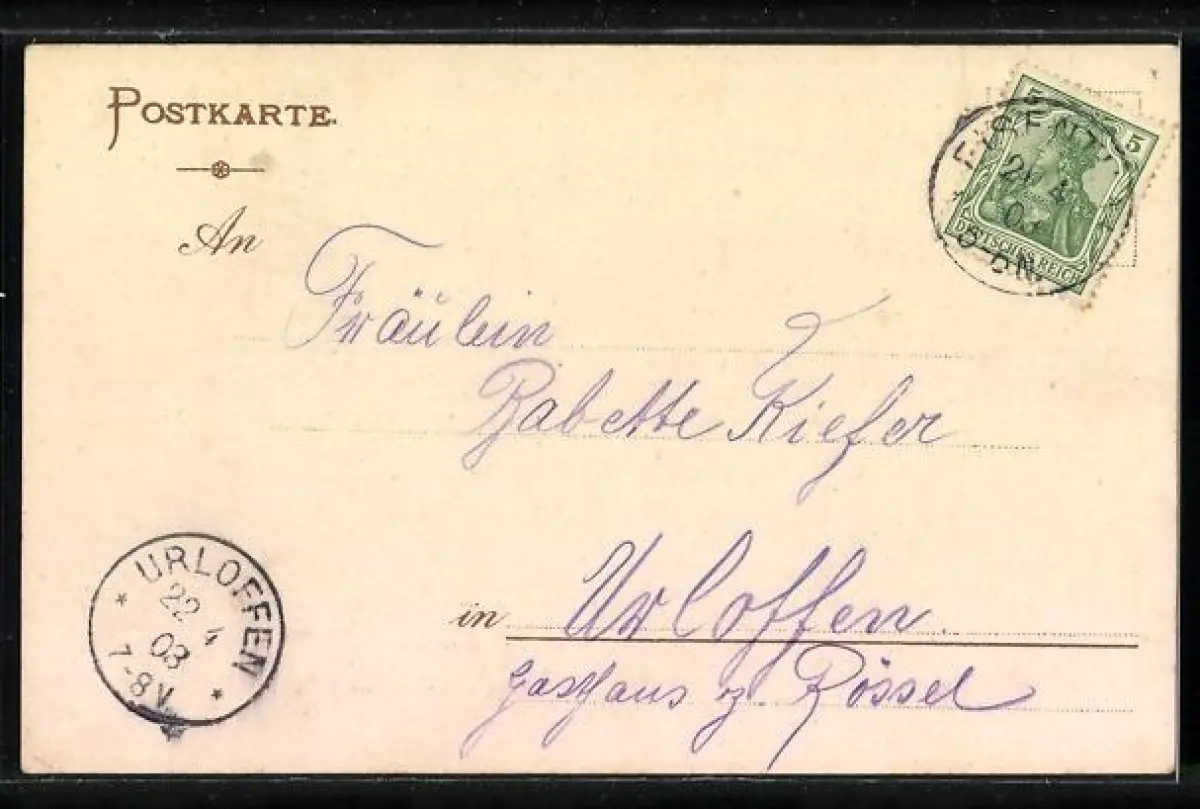 POSTKARTE.
An
5
5
DEUTSCHES REICH
Fräulein
Babette Kiefer
in Urloffen.
Gasthaus z Rössel
URLOFFEN
22 4
03
7-8V